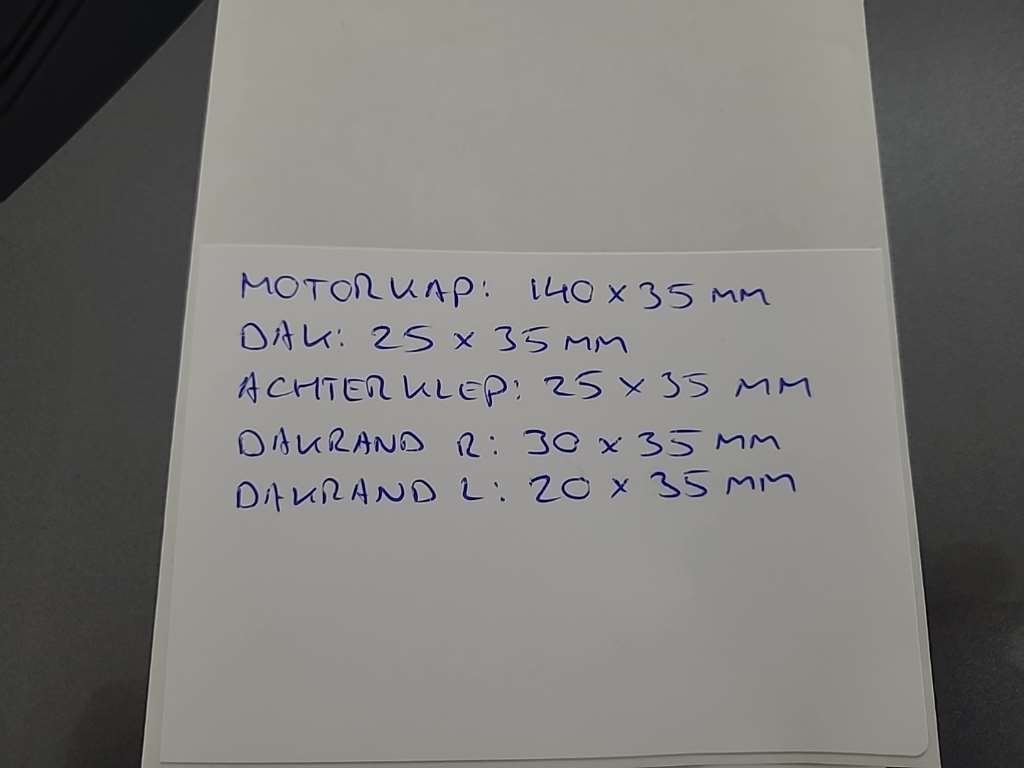 MOTORKAP: 140 x 35 MM
DAK: 25 x 35 MM
ACHTERKLEP: 25 x 35 MM
DAKRAND R: 30 x 35 MM
DAKRAND L: 20 x 35 MM